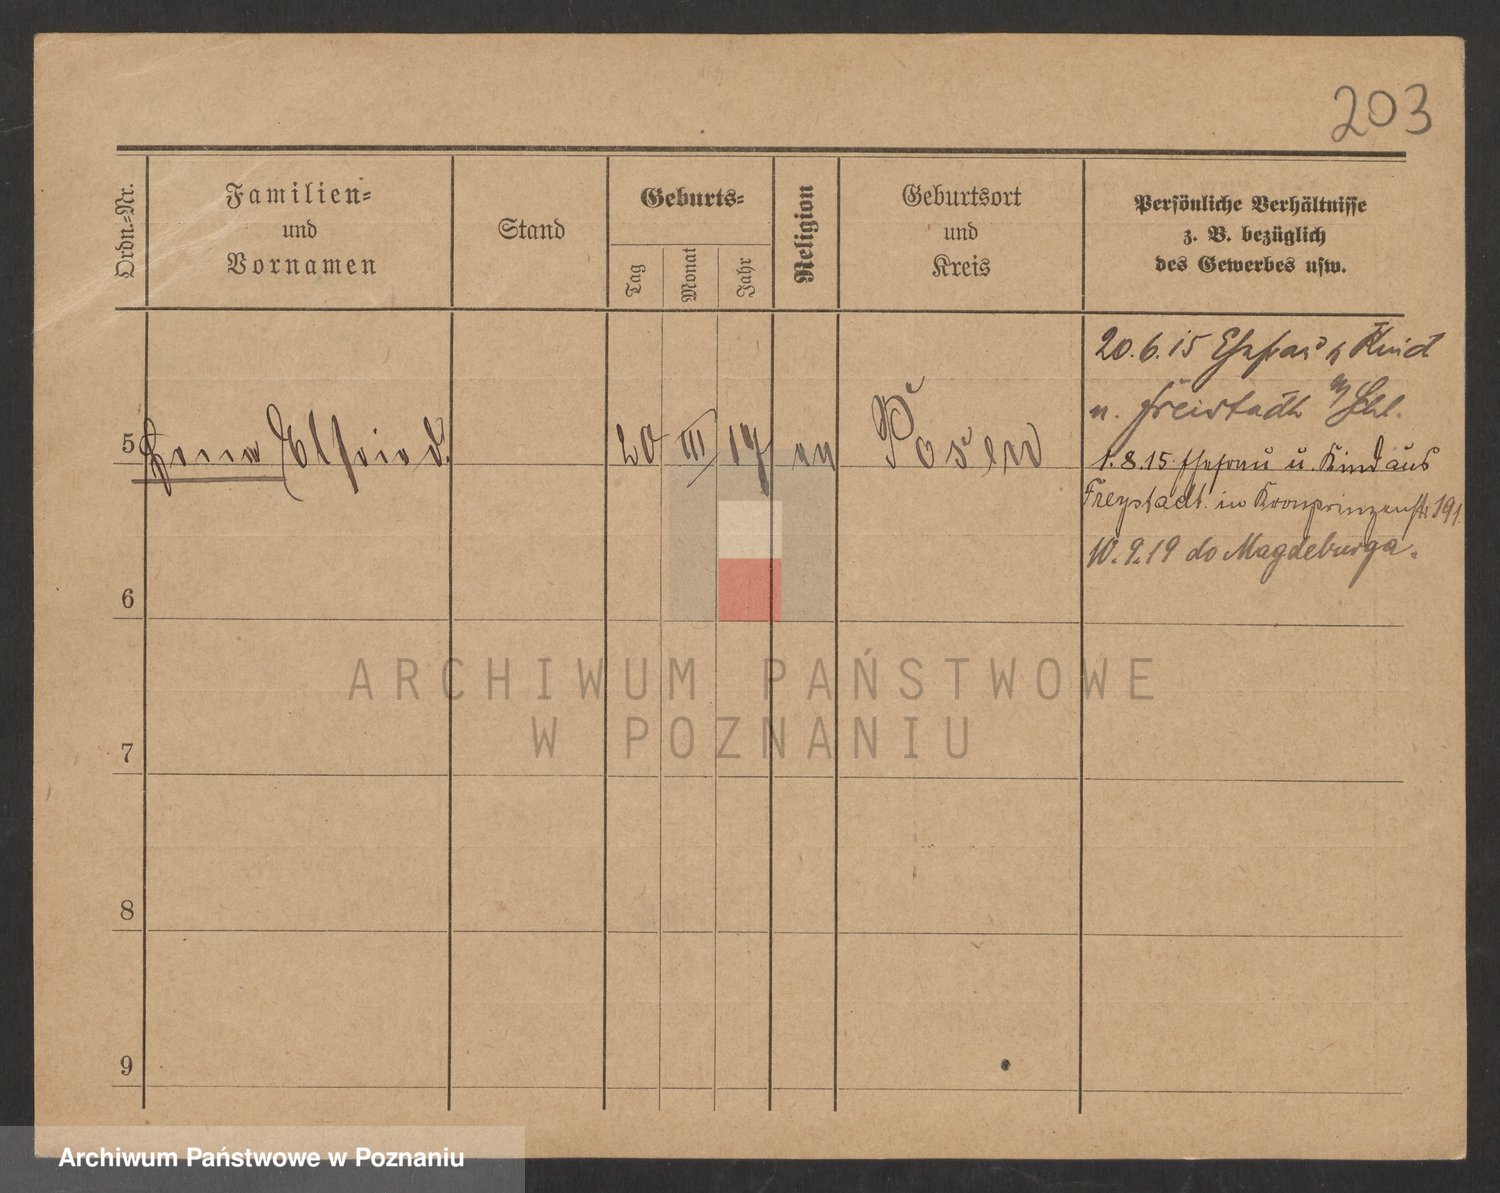 203
Ordn.=Nr.
Familien=
und
Vornamen
Stand
Geburts=
Tag
Monat
Jahr
Religion
Geburtsort
und
Kreis
Persönliche Verhältnisse
z. B. bezüglich
des Gewerbes usw.
20.6.15 Ehefrau u Kind
n. Freistadt i/Schl.
5 Elfried. 20 III 17 ev Posen
1.8.15 Ehefrau u. Kind aus
Freystadt in Kronprinzenstr. 191
10.9.19 do Magdeburga.
6
7
8
9
ARCHIWUM PAŃSTWOWE
W POZNANIU
Archiwum Państwowe w Poznaniu